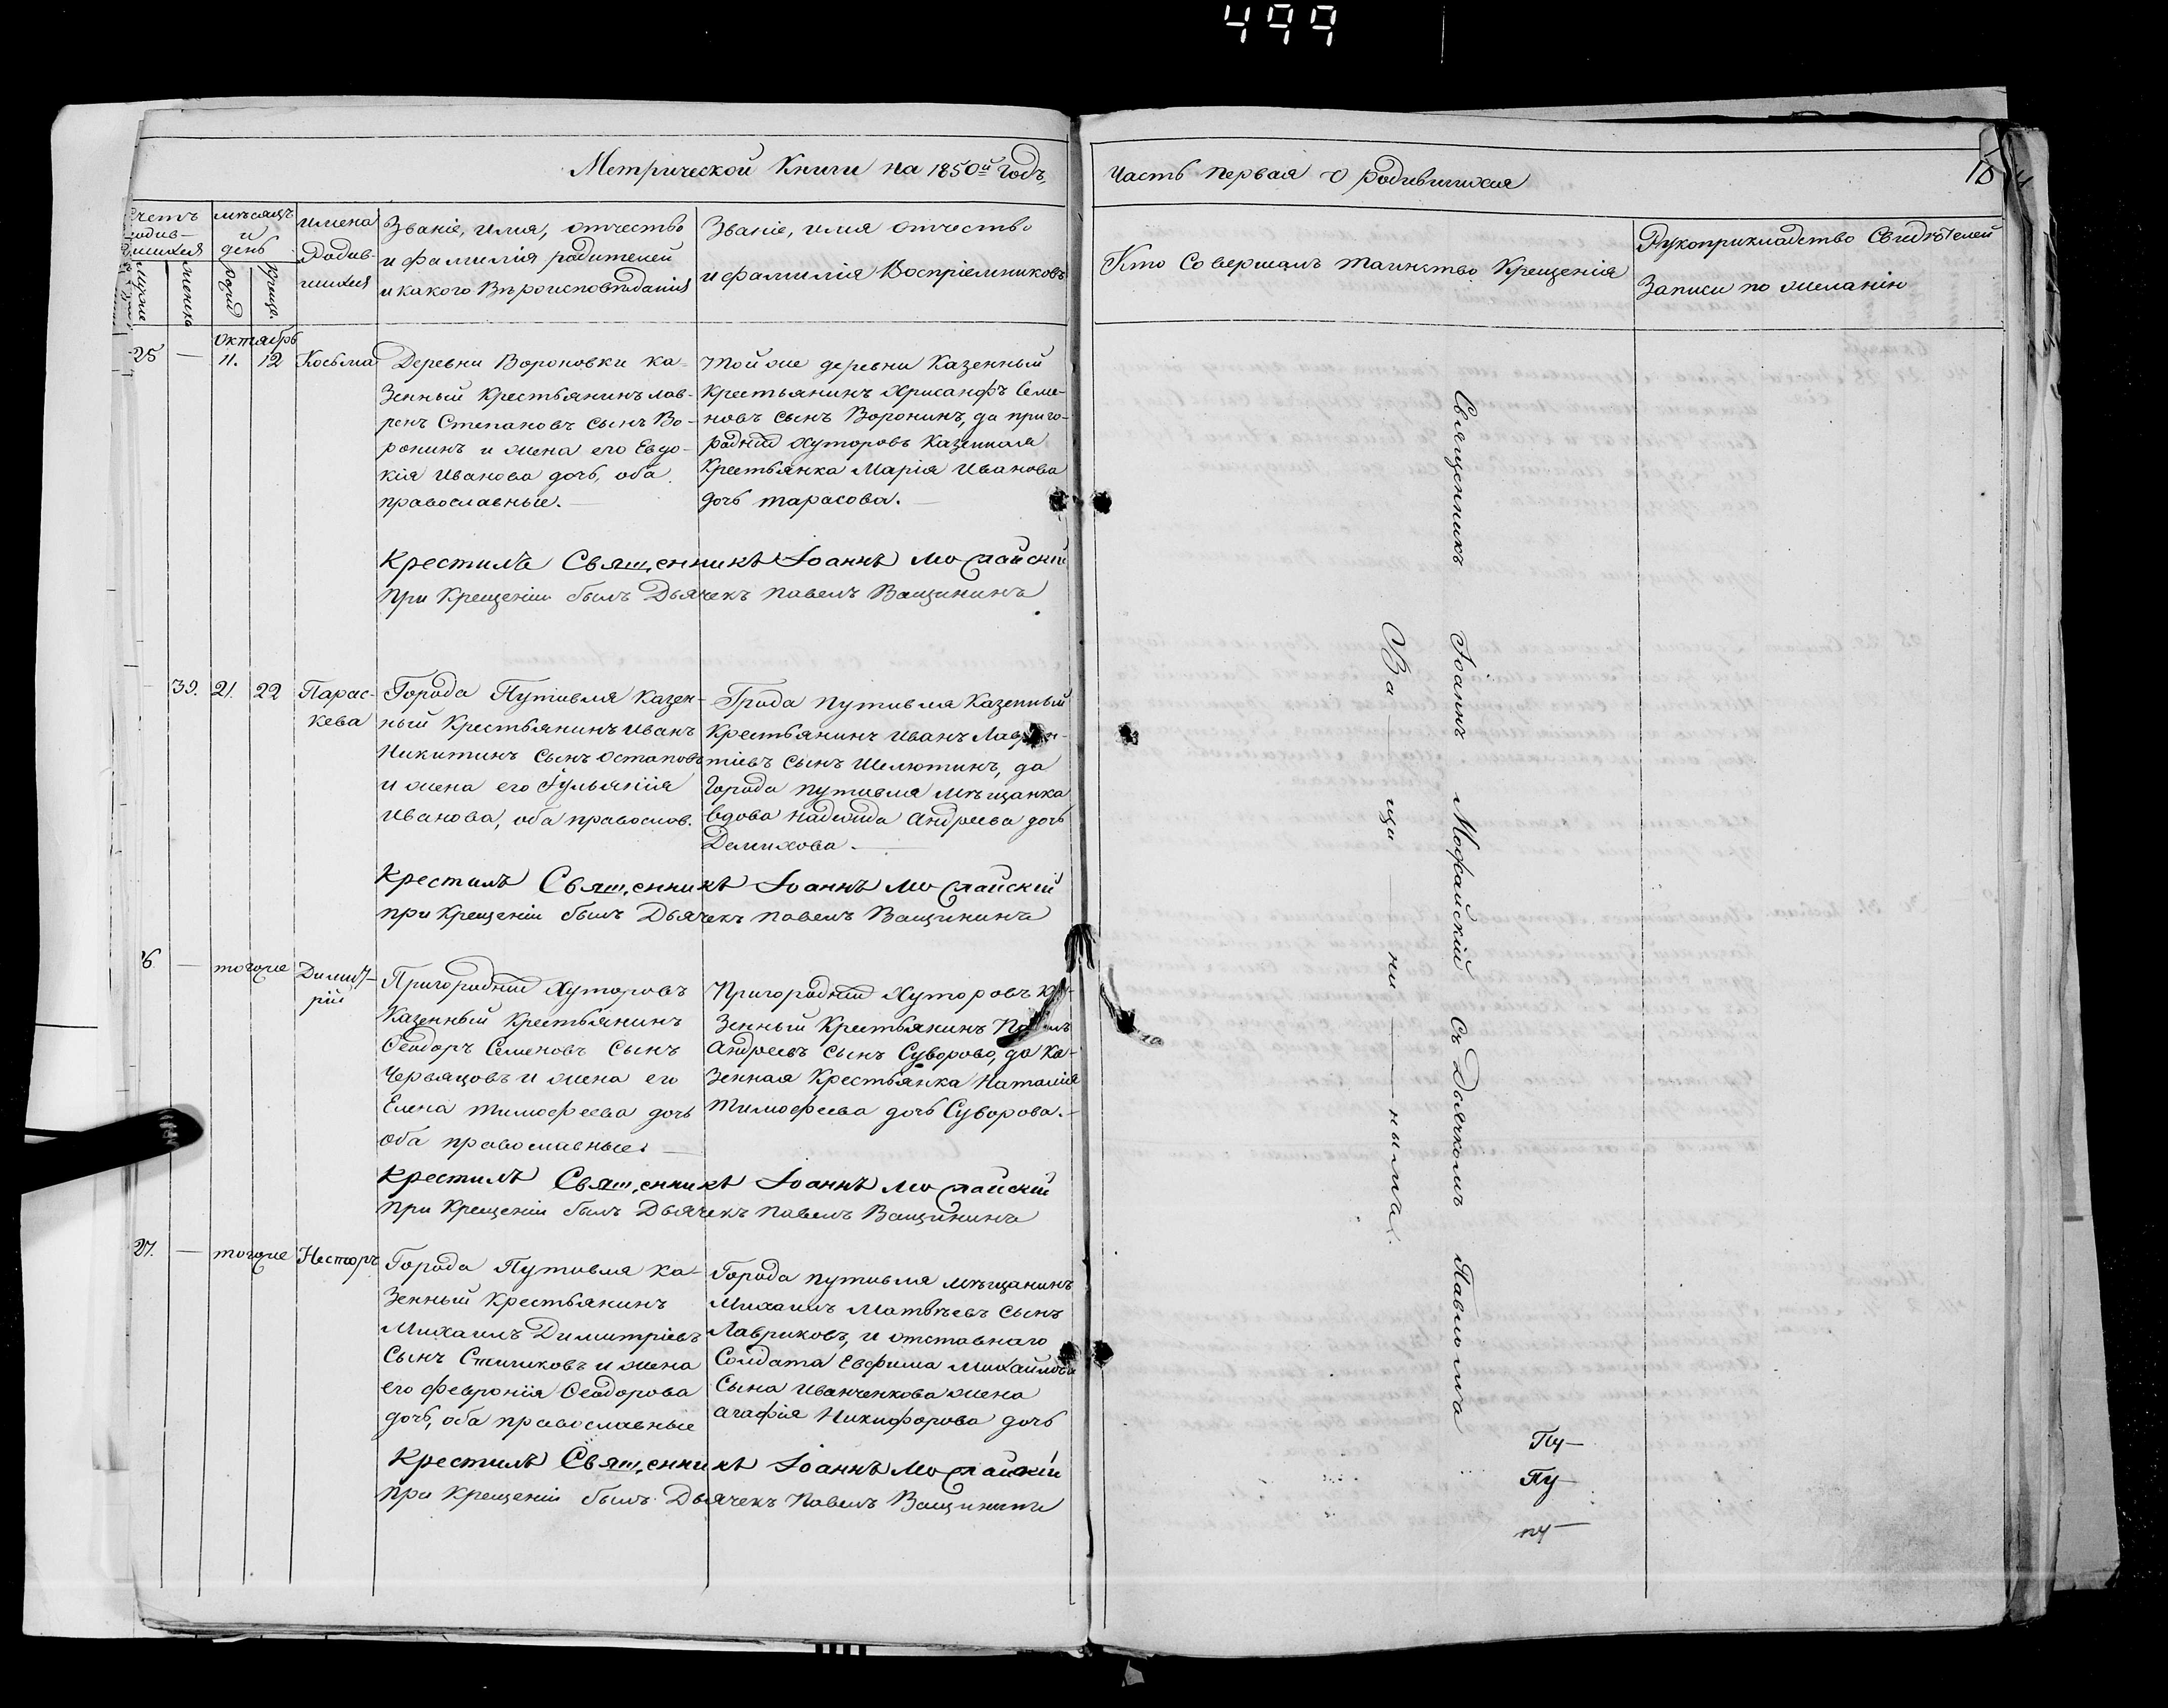 499
Метрической Книги на 1850й Годъ,
часть первая о родившихся
Счетъ родив-шихся
мѣсяцъ и день
имена Родив-шихся
Званіе, имя, отчество
и фамилія родителей
и какого Вѣроисповѣданія
Званіе, имя отчество
и фамилія Воспріемниковъ
Кто Совершалъ таинство Крещенія
Рукоприкладство Свидѣтелей
Записи по желанію
октябрь
25 — 11. 12 Косьма
Деревни Вороновки ка-
зенный Крестьянинъ лав-
рен Степановъ сынъ Во-
ронинъ и жена его Евдо-
кія Иванова дочь, оба
православные. —
той же деревни Казенный
Крестьянинъ Хрисанфъ Семе-
новъ сынъ Воронинъ, да приго-
родний хуторовъ Казенная
Крестьянка Марія Иванова
дочь тарасова. —
Крестилъ Священникъ Іоаннъ
при Крещеніи былъ Дьячекъ Павелъ Ващининъ
39. 21. 22 Парас-
кева
Города Путивля Казен-
ный Крестьянинъ Иванъ
Никитинъ сынъ Остаповъ
и жена его Іульянія
Иванова, оба православ.
Града путивля Казенный
Крестьянинъ Иванъ Лаврен-
тіевъ сынъ Шелютинъ, да
Города путивля мѣщанка
вдова надежда Андреева дочь
Демихова. —
Крестилъ Священникъ Іоаннъ
при Крещеніи былъ Дьячекъ Павелъ Ващининъ
26 — тогоже Димит-
рій
Пригородний Хуторовъ
Казенный Крестьянинъ
Ѳеодоръ Семеновъ сынъ
Червяцовъ и жена его
Елена тимофеева дочь
оба православные. —
Пригородний Хуторовъ Ка-
зенный Крестьянинъ Павелъ
Андреевъ сынъ Суворово, да Ка-
зенная Крестьянка Наталія
тимофеева дочь Суворова. —
Крестилъ Священникъ Іоаннъ
при Крещеніи былъ Дьячекъ Павелъ Ващининъ
27. — тогоже Несторъ
Города Путивля ка-
зенный Крестьянинъ
Михаилъ Димитріевъ
сынъ и жена
его Февронія Ѳеодорова
дочь, оба православные
Города путивля мѣщанинъ
Михаилъ Матвѣевъ сынъ
Лавриковъ, и отставнаго
Солдата Евфима Михайлова
сына Иванченкова жена
агафія Никифорова дочь
Крестилъ Священникъ Іоаннъ
при Крещеніи былъ Дьячекъ Павелъ Ващининъ
Священникъ Іоаннъ съ Дьячкомъ Павломъ
Ва — щи — ни — нымъ.
Пу —
Пу
пу —